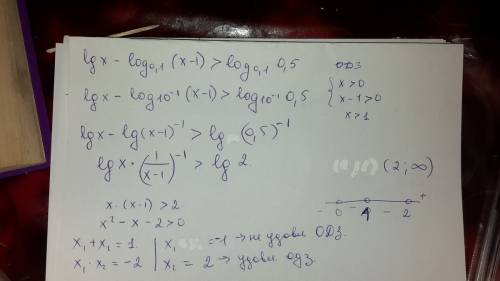 lg x - log₀,₁ (x-1) > log₀,₁ 0,5
ОДЗ
{ x > 0
x - 1 > 0
x > 1
lg x - log₁₀⁻¹ (x-1) > log₁₀⁻¹ 0,5
lg x - lg (x-1)⁻¹ > lg (0,5)⁻¹
lg x · (1/(x-1))⁻¹ > lg 2
(2; ∞)
x · (x-1) > 2
x² - x - 2 > 0
- 0 - 1 - 2 +
x₁ + x₂ = 1 | x₁ = -1 → не удовл ОДЗ.
x₁ · x₂ = -2 | x₂ = 2 → удовл одз.